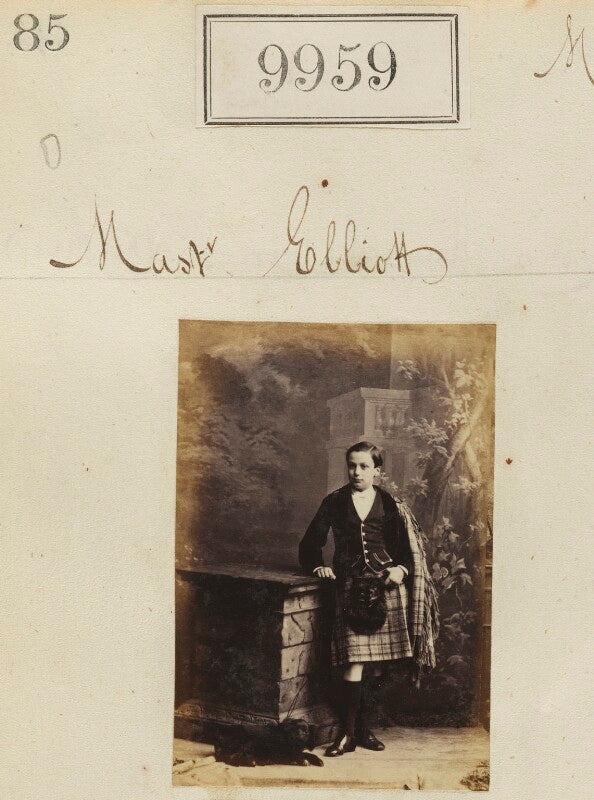 85
9959
M
Mastr Elliott